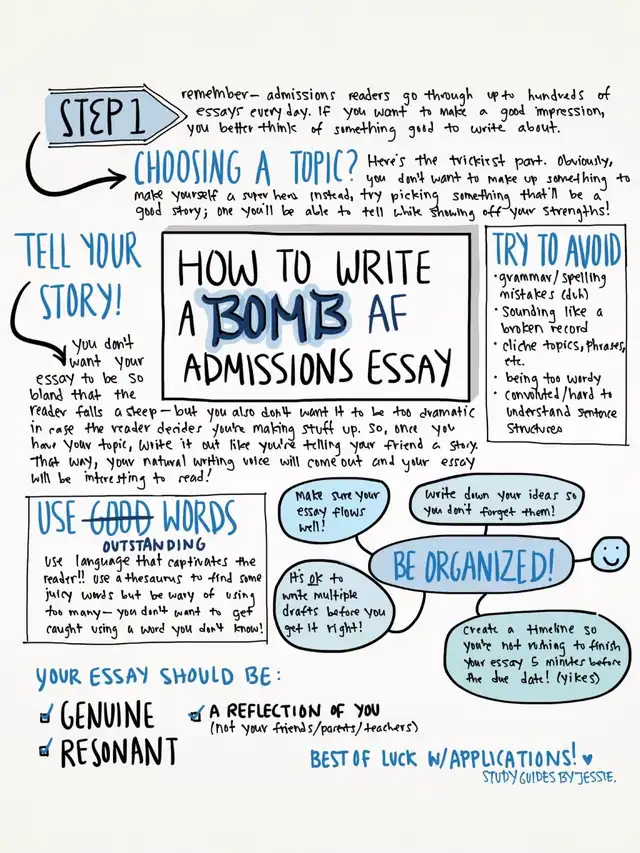 STEP 1
remember— admissions readers go through up to hundreds of
essays every day. If you want to make a good impression,
you better think of something good to write about.
CHOOSING A TOPIC?
Here's the trickiest part. Obviously,
you don't want to make up something to
make yourself a super hero. Instead, try picking something that'll be a
good story; one you'll be able to tell while showing off your strengths!
TELL YOUR
STORY!
you don't
want your
essay to be so
bland that the
reader falls asleep— but you also don't want it to be too dramatic
in case the reader decides you're making stuff up. So, once you
have your topic, write it out like you're telling your friend a story.
That way, your natural writing voice will come out and your essay
will be interesting to read!
HOW TO WRITE
A BOMB AF
ADMISSIONS ESSAY
TRY TO AVOID
• grammar/spelling
mistakes (duh)
• Sounding like a
broken record
• cliche topics, phrases,
etc.
• being too wordy
• convoluted/hard to
understand sentence
structures
USE GOOD WORDS
OUTSTANDING
Use language that captivates the
reader!! Use a thesaurus to find some
juicy words but be wary of using
too many— you don't want to get
caught using a word you don't know!
Make sure your
essay flows
well!
Write down your ideas so
you don't forget them!
BE ORGANIZED!
It's ok to
write multiple
drafts before you
get it right!
Create a timeline so
you're not rushing to finish
your essay 5 minutes before
the due date! (yikes)
YOUR ESSAY SHOULD BE:
GENUINE
RESONANT
A REFLECTION OF YOU
(not your friends/parents/teachers)
BEST OF LUCK W/APPLICATIONS! ♥
STUDY GUIDES BY JESSIE.